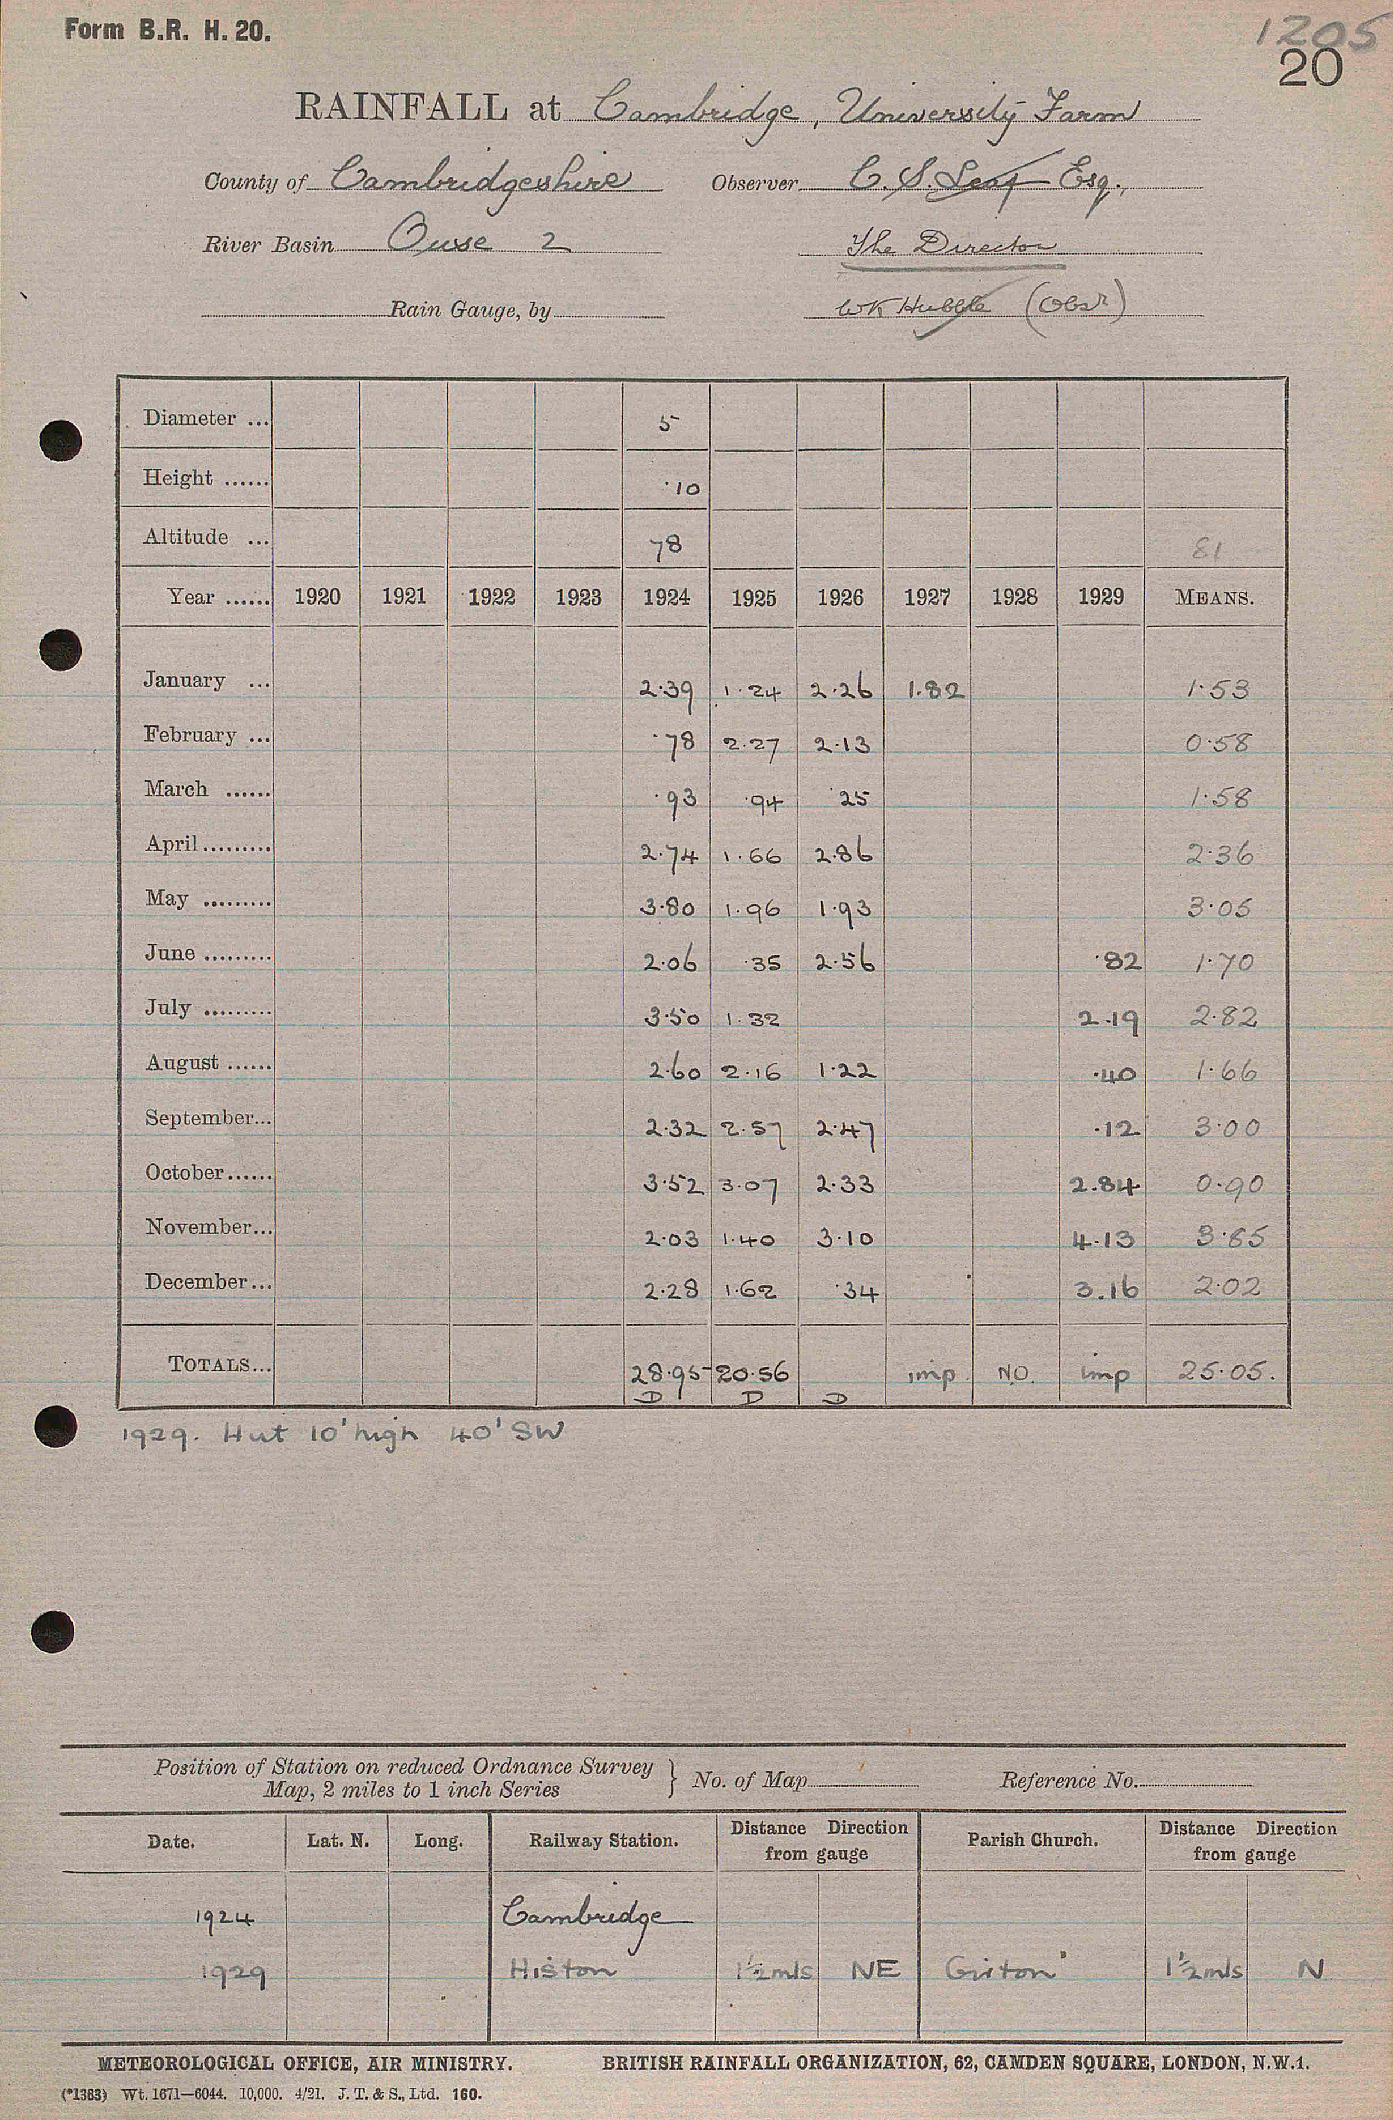 Form B.R. H. 20.
1205
20
RAINFALL at Cambridge, University Farm
County of Cambridgeshire Observer C. S. Leaf Esq.,
River Basin Ouse 2 The Director
Rain Gauge, by WK Hubble (Obsr)
Diameter ... 5
Height ...... ·10
Altitude ... 78 81
Year ...... 1920 1921 1922 1923 1924 1925 1926 1927 1928 1929 MEANS.
January ... 2·39 1·24 2·26 1.82 1·53
February ... ·78 2·27 2·13 0·58
March ...... ·93 ·94 ·25 1·58
April ......... 2·74 1·66 2·86 2·36
May ......... 3·80 1·96 1·93 3·05
June ......... 2·06 ·35 2·56 ·82 1·70
July ......... 3·50 1·32 2·19 2·82
August ...... 2·60 2·16 1·22 ·40 1·66
September... 2·32 2·57 2·47 ·12 3·00
October...... 3·52 3·07 2·33 2.84 0·90
November... 2·03 1·40 3·10 4·13 3·85
December... 2·28 1·62 ·34 3.16 2·02
TOTALS... 28·95 20·56 imp NO. imp 25·05.
D D D
1929. Hut 10' high 40' SW
Position of Station on reduced Ordnance Survey
Map, 2 miles to 1 inch Series } No. of Map Reference No.
Date. Lat. N. Long. Railway Station. Distance Direction from gauge Parish Church. Distance Direction from gauge
1924 Cambridge
1929 Histon 1½ mls NE Girton 1½ mls N
METEOROLOGICAL OFFICE, AIR MINISTRY. BRITISH RAINFALL ORGANIZATION, 62, CAMDEN SQUARE, LONDON, N.W.1.
(*1383) Wt. 1671—6044. 10,000. 4/21. J. T. & S., Ltd. 160.